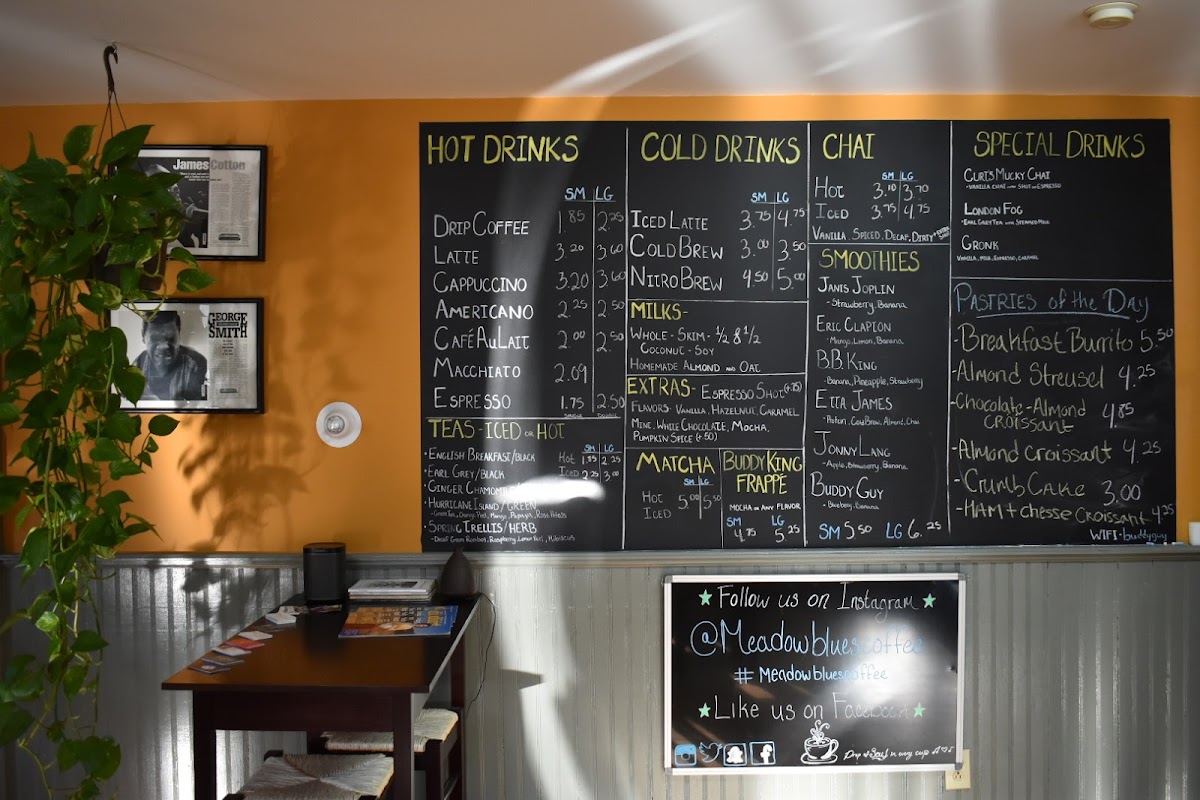 James Cotton
GEORGE
SMITH
HOT DRINKS
SM LG
DRIP COFFEE 1.85 2.25
LATTE 3.20 3.60
CAPPUCCINO 3.20 3.60
AMERICANO 2.25 2.50
CAFÉ AU LAIT 2.00 2.50
MACCHIATO 2.09
ESPRESSO 1.75 2.50
TEAS - ICED OR HOT
SM LG
• ENGLISH BREAKFAST/BLACK Hot 1.85 2.25
• EARL GREY/BLACK Iced 2.25 3.00
• GINGER CHAMOMILE
• HURRICANE ISLAND / GREEN
- Green Tea, Orange Peel, Mango, Papaya, Rose Petals
• SPRING TRELLIS/HERB
- Decaf Green Rooibos, Raspberry, Lemon Peel, Hibiscus
COLD DRINKS
SM LG
ICED LATTE 3.75 4.75
COLD BREW 3.00 3.50
NITRO BREW 4.50 5.00
MILKS-
WHOLE - SKIM - 1/2 & 1/2
COCONUT - SOY
HOMEMADE ALMOND AND OAT
EXTRAS- ESPRESSO SHOT (+.75)
FLAVORS: VANILLA, HAZELNUT, CARAMEL
MINT, WHITE CHOCOLATE, MOCHA,
PUMPKIN SPICE (+.50)
MATCHA
SM LG
HOT 5.00 5.50
ICED
BUDDY KING
FRAPPE
MOCHA OR ANY FLAVOR
SM LG
4.75 5.25
CHAI
SM LG
HOT 3.10 3.70
ICED 3.75 4.75
VANILLA, SPICED, DECAF, DIRTY
SMOOTHIES
JANIS JOPLIN
- Strawberry, Banana
ERIC CLAPTON
- Mango, Lemon, Banana
B.B. KING
- Banana, Pineapple, Strawberry
ETTA JAMES
- Protein, Cold Brew, Almond, Chai
JONNY LANG
- Apple, Strawberry, Banana
BUDDY GUY
- Blueberry, Banana
SM 5.50 LG 6.25
SPECIAL DRINKS
CURTIS MUCKY CHAI
- VANILLA CHAI WITH SHOT OF ESPRESSO
LONDON FOG
- EARL GREY TEA WITH STEAMED MILK
GRONK
VANILLA, MILK, ESPRESSO, CARAMEL
PASTRIES of the Day
-Breakfast Burrito 5.50
-Almond Streusel 4.25
-Chocolate-Almond
croissant 4.85
-Almond croissant 4.25
-Crumb Cake 3.00
-HAM + cheese Croissant 4.25
WIFI-buddyguy
Follow us on Instagram
@Meadowbluescoffee
# Meadowbluescoffee
Like us on Facebook